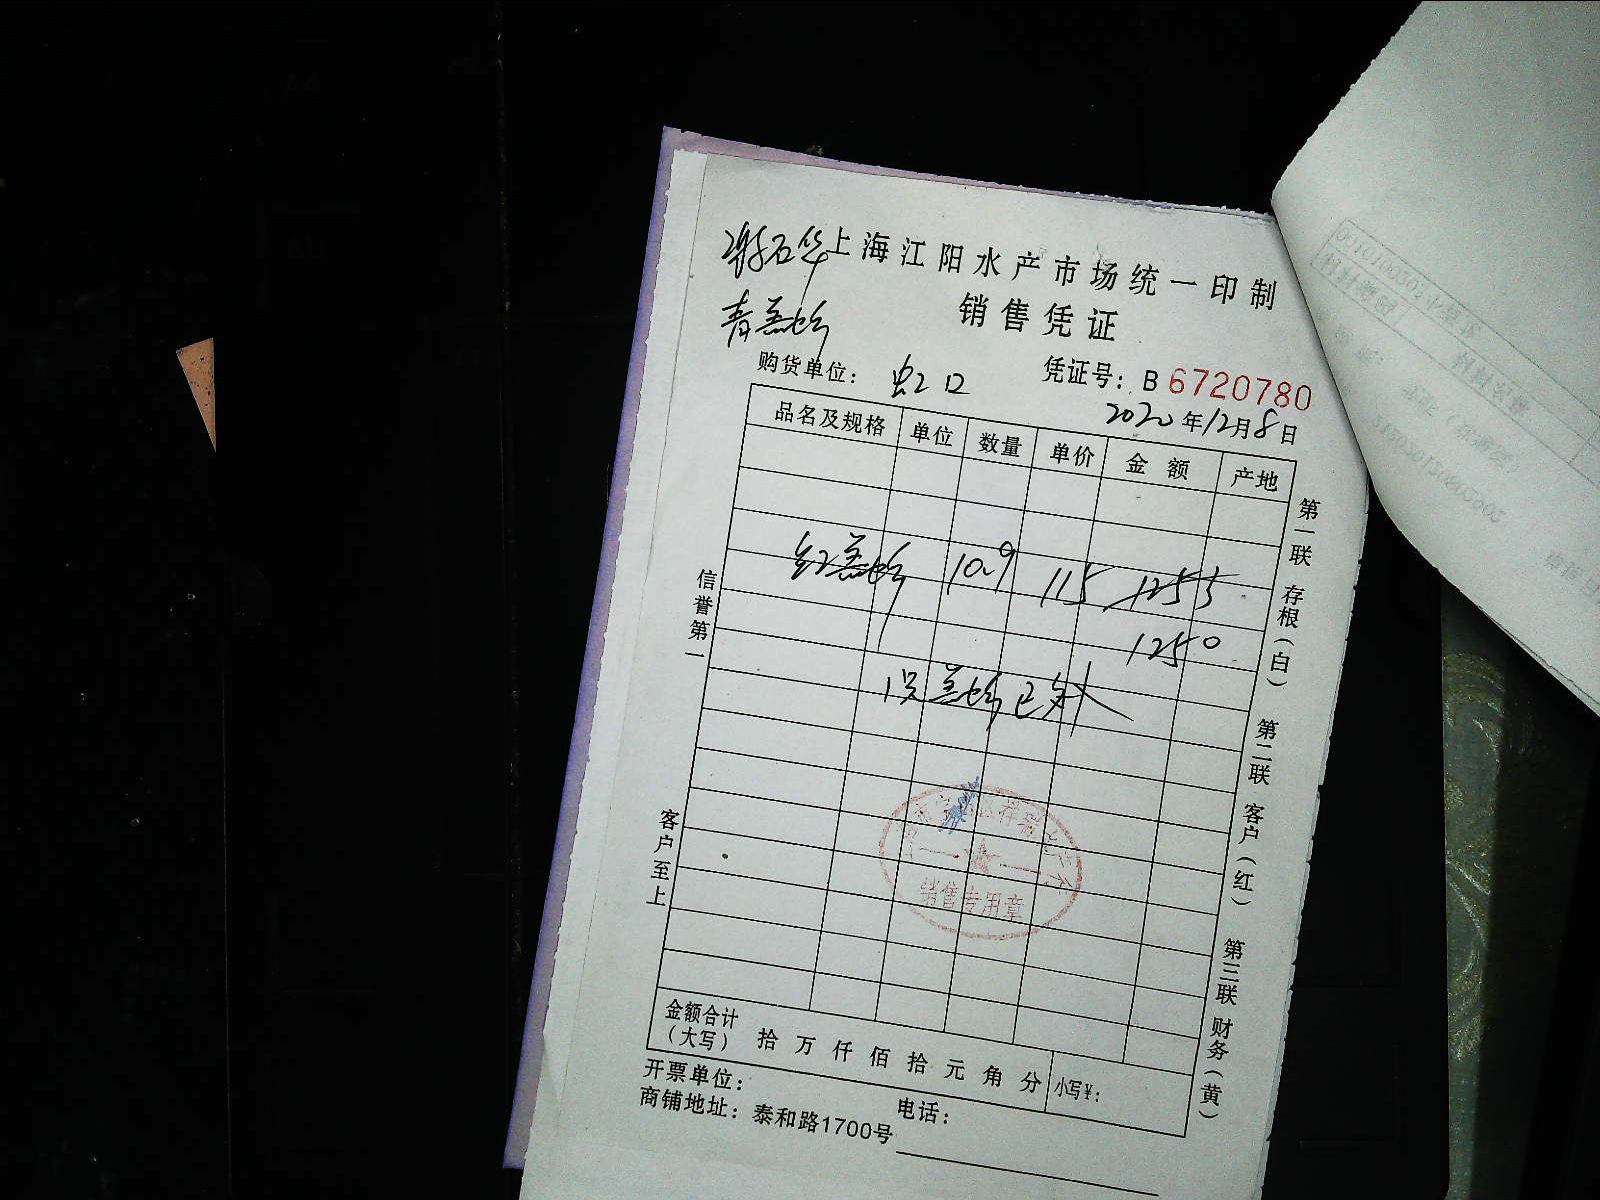 上海江阳水产市场统一印制
销售凭证
购货单位： 虹口
凭证号：B 6720780
2020年12月8日
品名及规格 单位 数量 单价 金 额 产地
10.9 115 1255
1250
信誉第一
客户至上
第一联 存根（白） 第二联 客户（红） 第三联 财务（黄）
销售专用章
金额合计（大写） 拾 万 仟 佰 拾 元 角 分 小写¥：
开票单位： 电话：
商铺地址：泰和路1700号